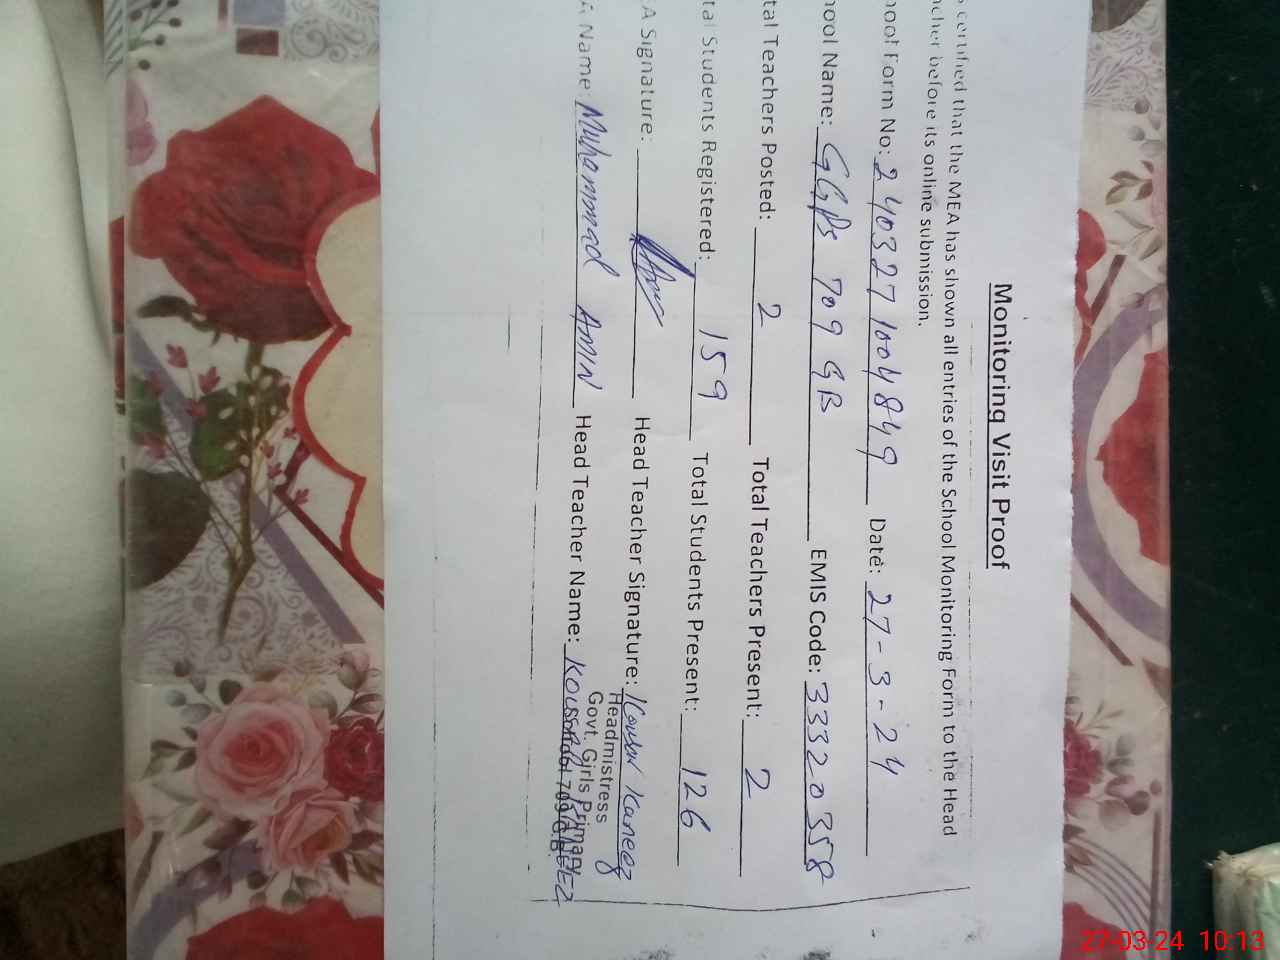 Monitoring Visit Proof
s certified that the MEA has shown all entries of the School Monitoring Form to the Head
cher before its online submission.
hool Form No: 240327 1004849 Date: 27-3-24
hool Name: GGPS 709 GB EMIS Code: 33320358
tal Teachers Posted: 2 Total Teachers Present: 2
tal Students Registered: 159 Total Students Present: 126
A Signature: Head Teacher Signature: Kousar Kaneez
A Name: Muhammad AMIN Head Teacher Name: KOUSAR KANEEZ
Headmistress
Govt. Girls Primary
School 709 G.B
27-03-24 10:13